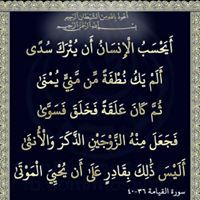 أعوذ بالله من الشيطان الرجيم
أَيَحْسَبُ الْإِنسَانُ أَن يُتْرَكَ سُدًى
أَلَمْ يَكُ نُطْفَةً مِّن مَّنِيٍّ يُمْنَى
ثُمَّ كَانَ عَلَقَةً فَخَلَقَ فَسَوَّى
فَجَعَلَ مِنْهُ الزَّوْجَيْنِ الذَّكَرَ وَالْأُنثَى
أَلَيْسَ ذَلِكَ بِقَادِرٍ عَلَى أَن يُحْيِيَ الْمَوْتَى
سورة القيامة ٣٦-٤٠